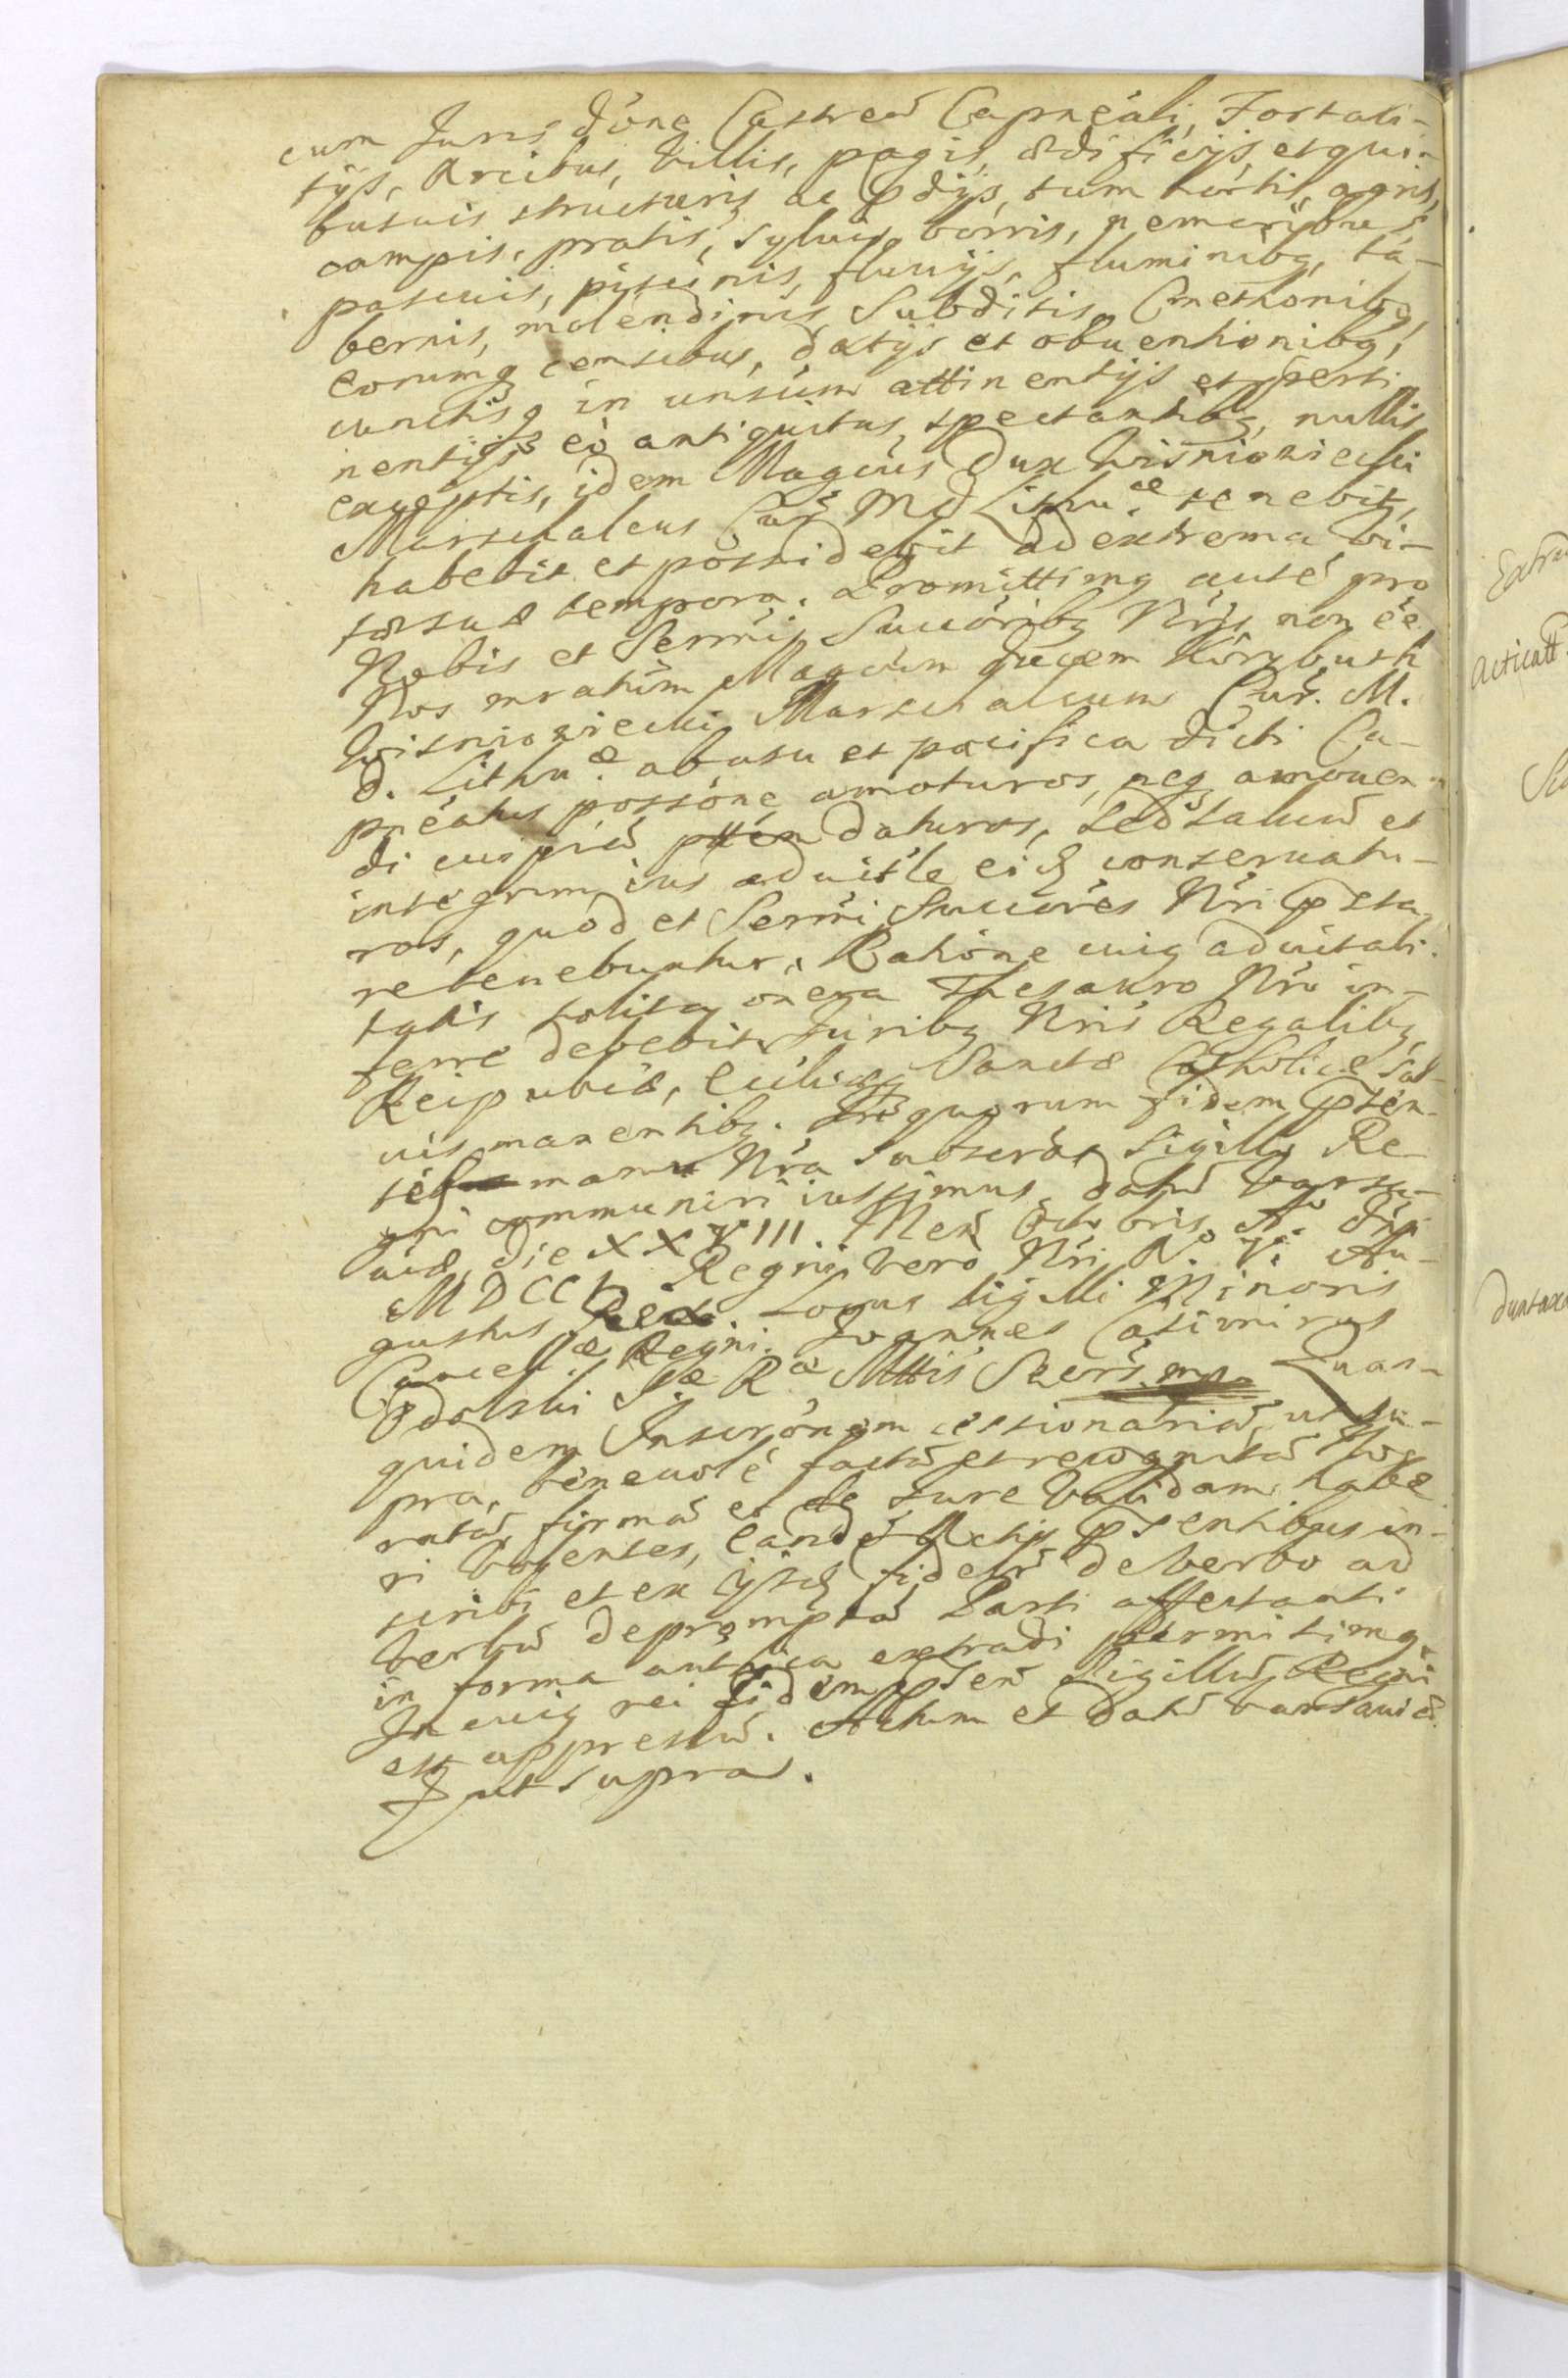 cum Jurisdóne Castren̄ Capnéali, Fortali-
tijs, Arcibus, Villis, pagis, ædificijs, et qui-
busuis structuris ac p̄dijs, tum hortis, agris,
campis, pratis, syluis, borris, nemoribus
pascuis, piscinis, fluuijs, fluminibq, ta-
bernis, molendinis, Subditis, Cmethonibq,
eorumq censibus, datijs et obuentionibq,
cunctisq in unsúm attinentijs et perti-
nentijs eò antiquitus, spectantibq, nullis
exceptis, idem Magcus Dux Wisniowiecki
Marschalcus Cur̄ M d Lithu.æ tenebit,
habebit et possidebit ad extrema vi-
tæ suæ tempora. Promittimq auté pro
Nobis et Serm̄is Succóribq Nr̄is non ée
Nos mratúm Magcum ducem Korybuth
Wisniowiecki Marschalcum Cur̄. M.
D. Lithu.æ ab usu et pacifica dicti Ca-
pnéatus possóne amoturos, neq amouen-
di cuipiā ptten daturos, sed saluū et
integrum ius aduitle eidē conseruatu-
ros, quod et Serm̄i Succóres Nr̄i p̄sta-
re tenebuntur. Ratióne cuiq aduitali-
tatis solita onera Thesauro Nr̄o in-
ferre debebit. Juribq Nr̄is Regalibq,
Reipubcæ, Ecclæq Sanctæ Catholicæ sal-
uis manentibq. In quorum fidem p̄sén-
tes manu Nr̄a subscr̄ás Sigillo Re-
gni communiri iussimus. Datū Varsa-
uiæ, die XXVIII Men̄ Octobris. Ao Dn̄i
MDCCV Regni vero Nr̄i No. Vi. Au-
gustus Rex. Locus Sigilli Minoris
Cancellæ Regni. Joannes Casimirus
Odolski Sæ Ræ Mttis Secr̄s mp. Quan-
quidem Inscrónem cessionariā, ut su-
pra, beneuolé factā et recognitā Nos
ratā, firmā et de iure validam habe-
ri volentes, eandé Actis p̄sentibus in-
scribi et ex ijsdē fidelr̄ de verbo ad
verbū depromptā Parti affectanti
in forma auttica extradi permitimq.
In cuiq rei fidem p̄sen̄ Sigillū Regni
est appressū. Actum et Datū Varsauiæ
ut supra.
Extra
Acticatt
duntaxa